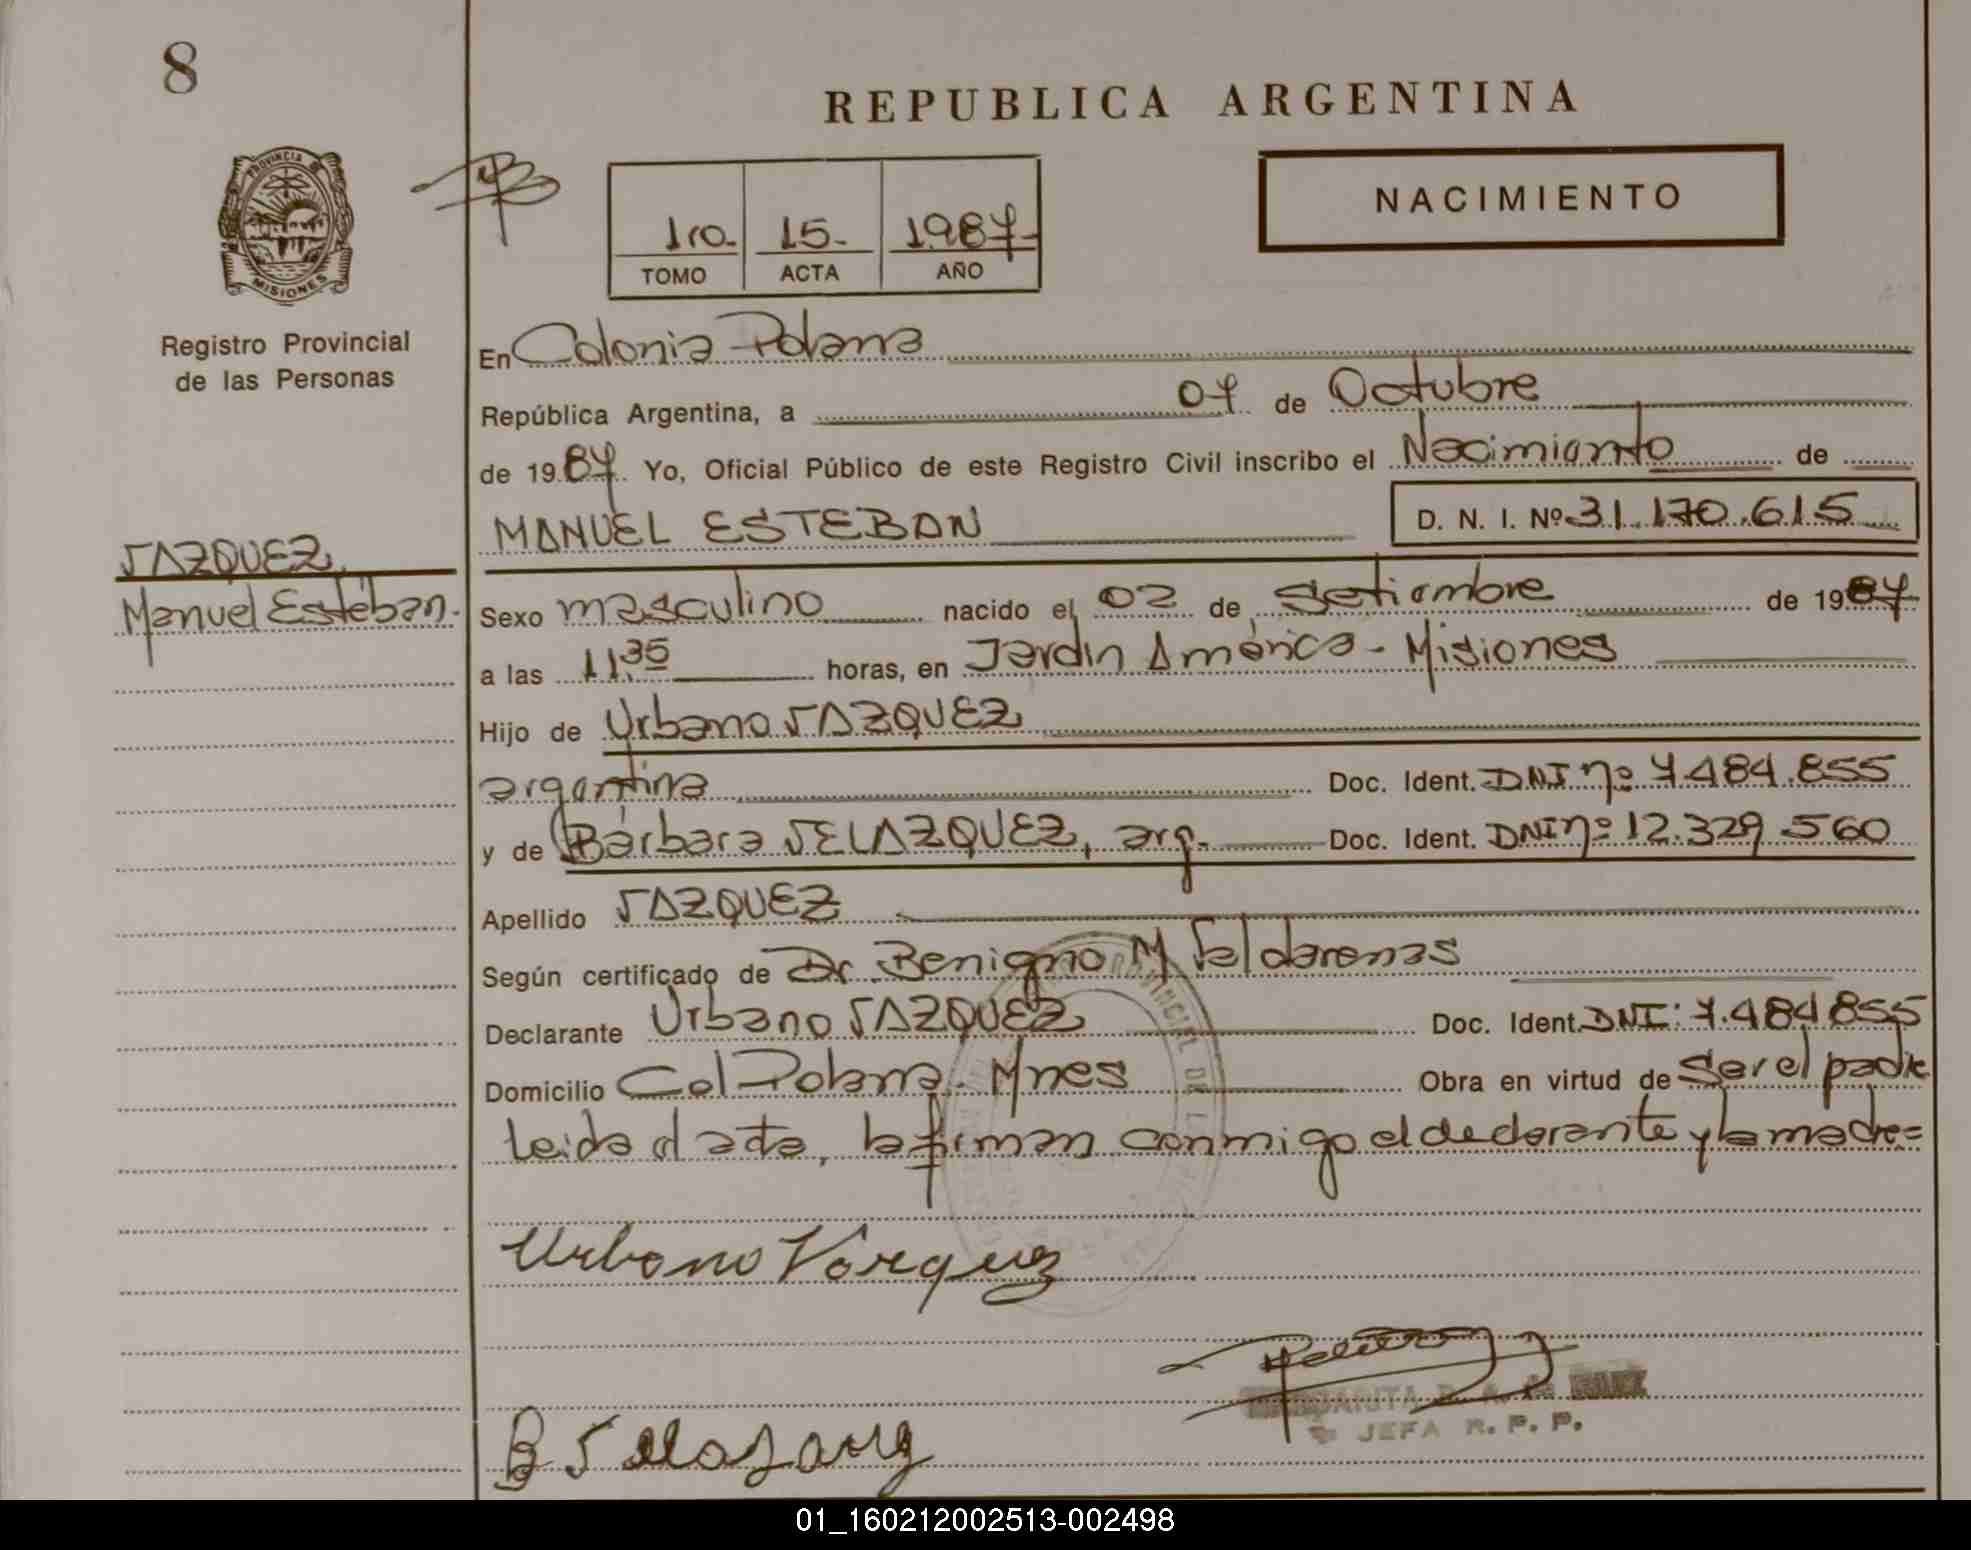 8
REPUBLICA ARGENTINA
PROVINCIA
MISIONES
1ro. 15. 1987
TOMO ACTA AÑO
NACIMIENTO
Registro Provincial
de las Personas
En Colonia Polana
República Argentina, a 07 de Octubre
de 1987 Yo, Oficial Público de este Registro Civil inscribo el Nacimiento de
MANUEL ESTEBAN D. N. I. Nº 31.170.615
VAZQUEZ
Manuel Estéban.
Sexo masculino nacido el 02 de Setiembre de 1987
a las 11,35 horas, en Jardín América - Misiones
Hijo de Urbano VAZQUEZ
argentina Doc. Ident. DNI nº 7.484.855
y de Bárbara VELAZQUEZ, arg. Doc. Ident. DNI nº 12.329.560
Apellido VAZQUEZ
Según certificado de Dr. Benigno M
Declarante Urbano VAZQUEZ Doc. Ident. DNI: 7.484.855
Domicilio Col Polana - Mnes Obra en virtud de Ser el padre
Leida el acta, la firman conmigo el declarante y la madre=
Urbano Vazquez
JEFA R. P. P.
B
01_160212002513-002498